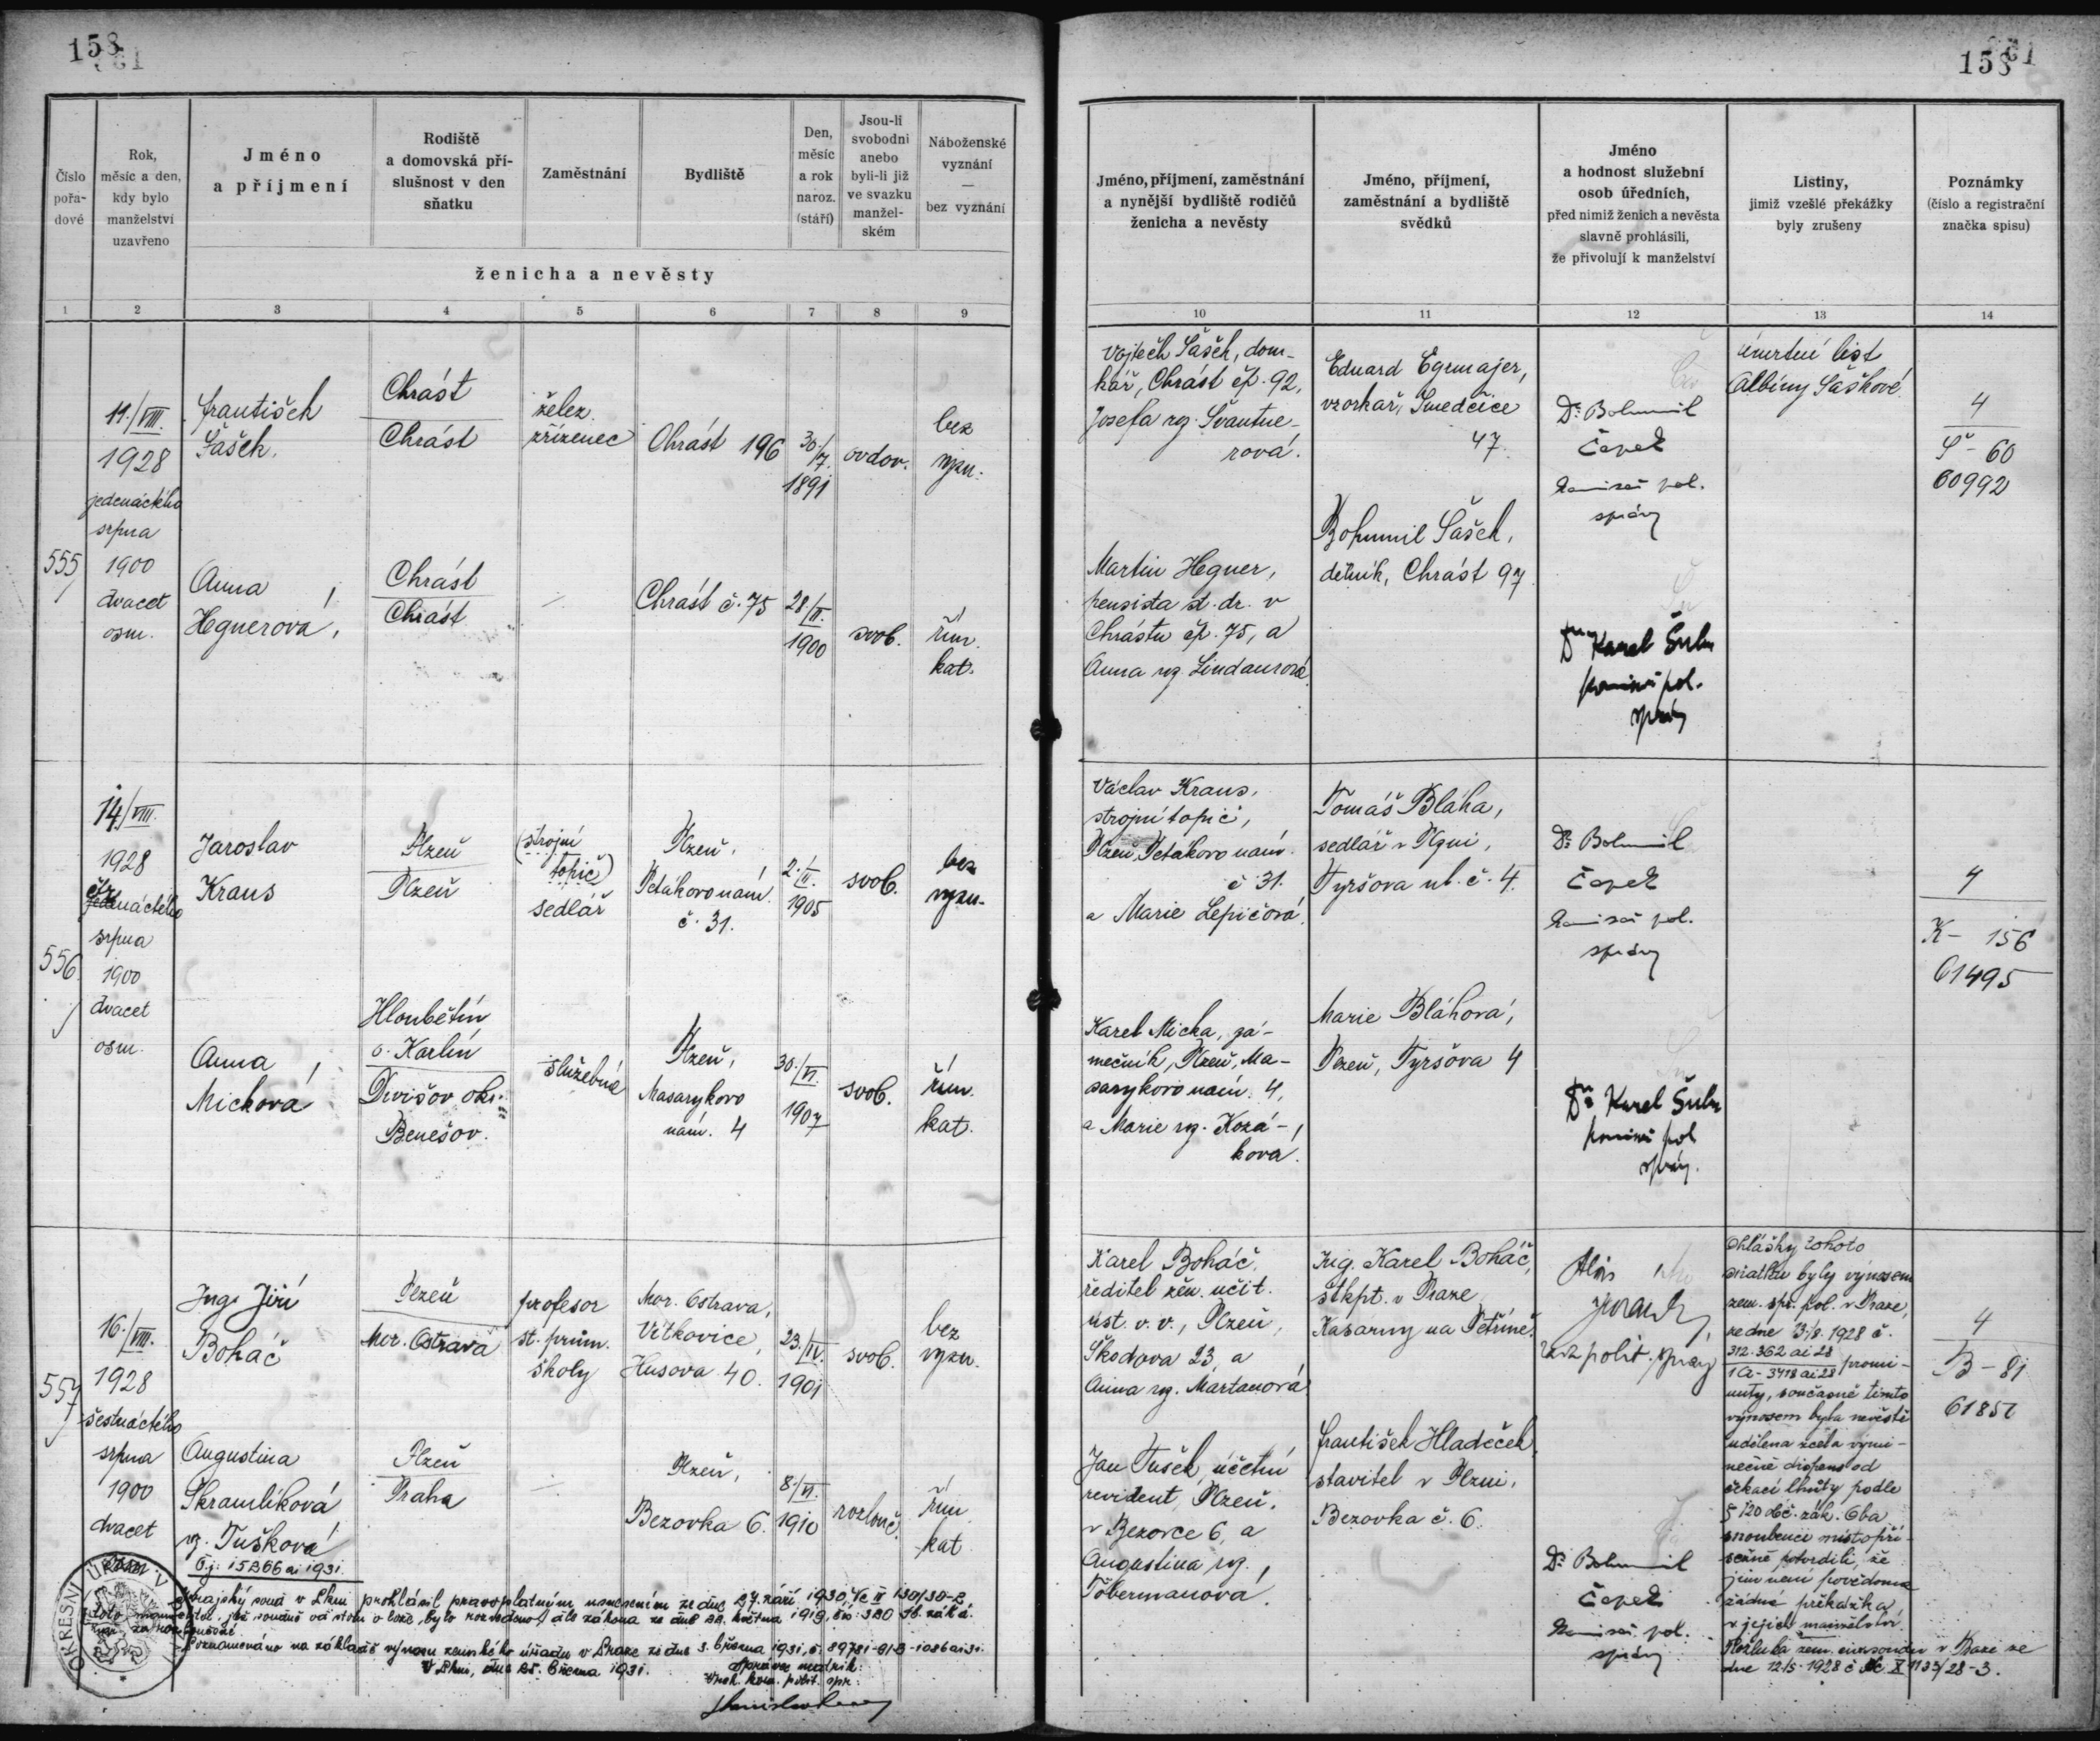 158
158
Číslo pořa- dové
Rok, měsíc a den, kdy bylo manželství uzavřeno
Jméno a příjmení
Rodiště a domovská pří- slušnost v den sňatku
Zaměstnání
Bydliště
Den, měsíc a rok naroz. (stáří)
Jsou-li svobodni anebo byli-li již ve svazku manžel- ském
Náboženské vyznání — bez vyznání
ženicha a nevěsty
Jméno, příjmení, zaměstnání a nynější bydliště rodičů ženicha a nevěsty
Jméno, příjmení, zaměstnání a bydliště svědků
Jméno a hodnost služební osob úředních, před nimiž ženich a nevěsta slavně prohlásili, že přivolují k manželství
Listiny, jimiž vzešlé překážky byly zrušeny
Poznámky (číslo a registrační značka spisu)
1 2 3 4 5 6 7 8 9 10 11 12 13 14
555
11./VIII.
1928
jedenáctého
srpna
1900
dvacet
osm.
František
Šašek.
Chrást
Chrást
želez.
zřízenec
Chrást 196
30./7.
1891
ovdov.
bez
vyzn.
Anna
Hegnerová,
Chrást
Chrást
Chrást č. 75
28./II.
1900
svob.
řím.
kat.
Vojtěch Šašek, dom-
kář, Chrást čp. 92,
Josefa roz. Švantne-
rová.
Martin Hegner,
pensista st. dr. v
Chrástu čp. 75, a
Anna roz. Lindaurová.
Eduard Egrmajer,
vzorkař, Smědčice
47.
Bohumil Šašek,
dělník, Chrást 97
Dr. Bohumil
Čapek
komisař pol.
správy
Dr Karel
komisař pol.
správy
úmrtní list
Albíny Šaškové.
4
Š - 60
60992
556
14./VIII.
1928
čtrnáctého
srpna
1900
dvacet
osm.
Jaroslav
Kraus
Plzeň
Plzeň
(strojní
topič)
sedlář
Plzeň,
Petákovo nám.
č. 31.
2./II.
1905
svob.
bez
vyzn.
Anna
Micková
Hloubětín
o. Karlín
Divišov okr.
Benešov.
služebná
Plzeň,
Masarykovo
nám. 4
30./VI.
1907
svob.
řím.
kat.
Václav Kraus,
strojní topič,
Plzeň, Petákovo nám.
č 31.
a Marie Lepičová.
Karel Micka, zá-
mečník, Plzeň, Ma-
sarykovo nám. 4,
a Marie roz. Kozá-
ková.
Tomáš Bláha,
sedlář v Plzni,
Tyršova ul. č. 4.
Marie Bláhová,
Plzeň, Tyršova 4
Dr. Bohumil
Čapek
komisař pol.
správy
Dr Karel
komisař pol
správy.
4
K - 156
61495
557
16./VIII.
1928
šestnáctého
srpna
1900
dvacet
osm
Ing. Jiří
Boháč
Plzeň
Mor. Ostrava
profesor
st. prům.
školy
Mor. Ostrava,
Vítkovice,
Husova 40.
23./IV.
1901
svob.
bez
vyzn.
Augustina
Škramlíková
roz. Tušková
Plzeň
Praha
Plzeň,
Bezovka 6.
8./VI.
1910
rozlouč.
řím.
kat
Karel Boháč,
ředitel žen. učit.
úst. v. v., Plzeň,
Škodova 23, a
Anna roz. Martanová
Jan Tušek, účetní
revident, Plzeň,
v Bezovce 6, a
Augustina roz.
Töbermanová.
Ing. Karel Boháč,
štkpt. v Praze
Kasárny na Petříně.
František Hladeček
stavitel v Plzni,
Bezovka č. 6.
Alois
rada polit. správy
Dr. Bohumil
Čapek
komisař pol.
správy
Ohlášky tohoto
sňatku byly výnosem
zem. spr. pol. v Praze,
ze dne 13/8. 1928 č.
312.362 ai 28
1a - 3418 ai 28 promi-
nuty, současně tímto
výnosem byla nevěstě
udělena zcela vými-
nečně dispens od
čekací lhůty podle
§ 120 obč. zák. Oba
snoubenci místopří-
sežně potvrdili, že
jim není povědoma
žádná překážka
v jejich manželství.
Rozluka zem. civ. soudu v Praze ze
dne 12/5. 1928 č X 1135/28-3.
4
B - 81
Č.j. 15266 ai 1931.
Krajský soud v Plzni prohlásil pravoplatným usnesením ze dne 27. září 1930,
toto manželství, jež soudně od stolu a lože bylo rozvedeno, dle zákona ze dne 22. května 1919, čís. 320 Sb. zák.
za rozloučené.
Poznamenáno na základě výnosu zemského úřadu v Praze ze dne 3. března 1931,
V Plzni, dne 25. března 1931.
Správce matrik:
OKRESNÍ ÚŘAD V